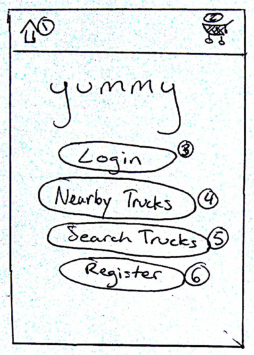 ①
②
yummy
Login ③
Nearby Trucks ④
Search Trucks ⑤
Register ⑥